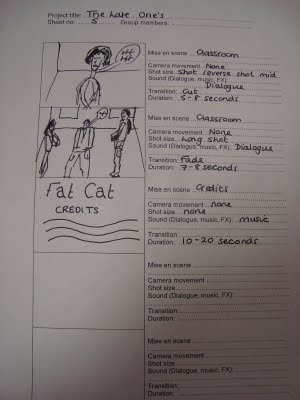 Project title: The Late One's
Sheet no: 5 Group members:
Mise en scene Classroom
Camera movement None
Shot size Shot reverse shot mid
Sound (Dialogue, music, FX):
Dialogue
Transition: Cut
Duration: 5-8 seconds
Mise en scene Classroom
Camera movement None
Shot size Long shot
Sound (Dialogue, music, FX): Dialogue
Transition: Fade
Duration: 7-8 seconds
Fat Cat
CREDITS
Mise en scene Credits
Camera movement none
Shot size none
Sound (Dialogue, music, FX): music
Transition:
Duration: 10-20 seconds
Mise en scene
Camera movement
Shot size
Sound (Dialogue, music, FX):
Transition:
Duration:
Mise en scene
Camera movement
Shot size
Sound (Dialogue, music, FX):
Transition:
Duration: